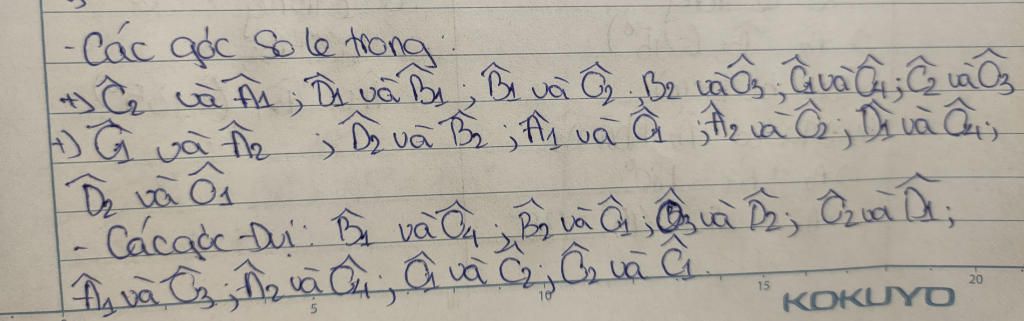 - Các góc so le trong:
+) Ĉ2 và Â1 ; D̂1 và B̂1 ; B̂1 và Ô2 ; B2 và Ô3 ; Ĉ1 và Ô4 ; Ĉ2 và Ô3
+) Ĉ1 và Â2 ; D̂2 và B̂2 ; Â1 và Ô1 ; Â2 và Ô2 ; D̂1 và Ô4 ;
D̂2 và Ô1
- Các góc -Dvị: B̂1 và Ô4 ; B̂2 và Ô1 ; Ô3 và D̂2 ; Ô2 và D̂1 ;
Â1 và Ô3 ; Â2 và Ô4 ; Ĉ1 và Ô2 ; Ĉ2 và Ô1.
5 10 15 20
KOKUYO